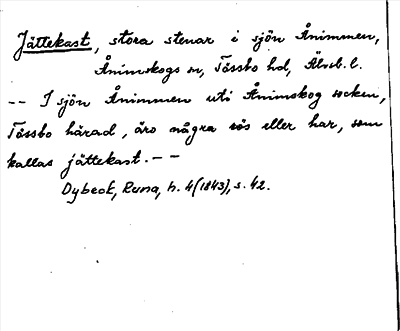 Jättekast, stora stenar i sjön Ånimmen,
Ånimskogs sn, Tössbo hd, Älvsb. l.
-- I sjön Ånimmen uti Ånimskog socken,
Tössbo härad, äro några rös eller har, som
kallas jättekast. --
Dybeck, Runa, h. 4 (1843), s. 42.